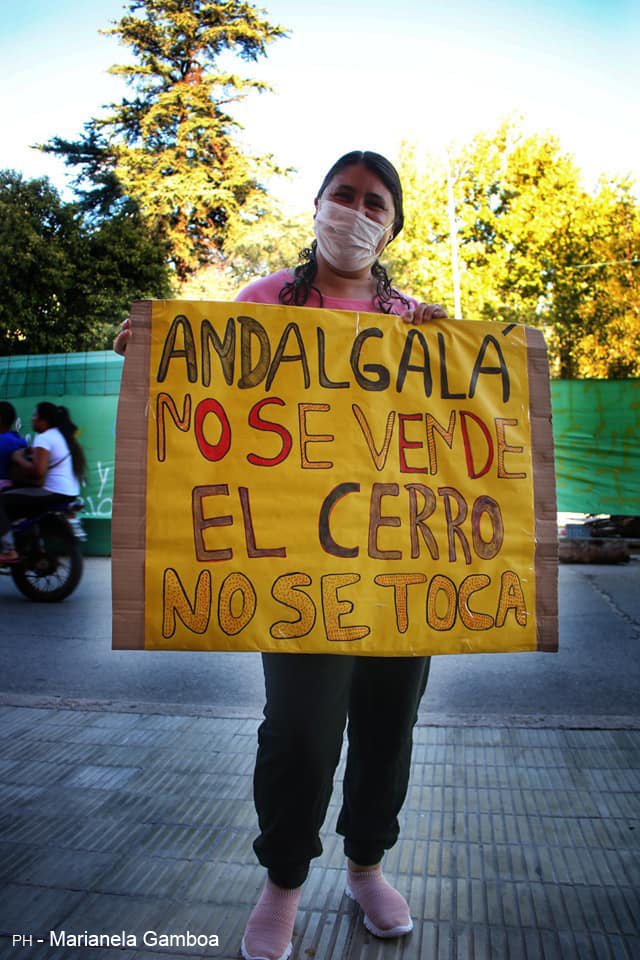 ANDALGALÁ
NO SE VENDE
EL CERRO
NO SE TOCA
PH - Marianela Gamboa